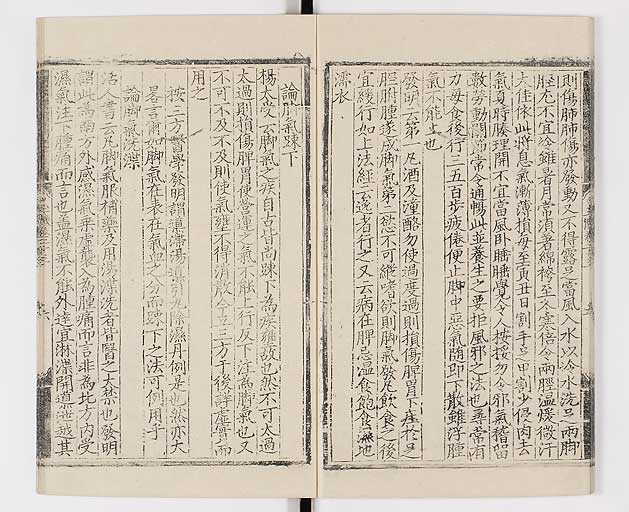 則傷肺肺傷亦發動又不得露足當風入水以冷水洗足兩脚
脛尤不宜冷雖暑月常須著綿袴至冬寒倍令兩脛溫煖微汗
大佳依此將息氣漸薄損每至寅丑日割手足甲割少侵肉去
氣夏時腠理開不宜當風臥睡睡覺令人按挼勿令邪氣稽留
數勞動關節常令通暢此並養生之要拒風邪之法也尋常有
力每食後行三五百步疲倦便止脚中惡氣隨即下散雖浮腫
氣不能上也
發明云第一凡酒及潼酪勿使過度過則損傷脾胃下注於足
脛胕腫遂成脚氣第二慾不可縱嗜欲則脚氣發凡飲食之後
宜緩行如上法經云逸者行之又云病在脾忌溫食飽食濕地
濡衣
論脚氣踈下
楊太受云脚氣之疾自古皆尚踈下為疾壅故也然不可太過
太過則損傷脾胃使營運之氣不能上行反下注為脚氣也又
不可不及不及則使氣壅不得消散今立三方于後詳虛實而
用之
按三方醫學發明謂導滯湯道滑丸除濕丹例是也然亦大
畧言爾如脚氣在表在氣血之分而踈下之法可例用乎
論脚氣洗渫
活人書云凡脚氣服補藥及用湯渫洗者皆醫之大禁也發明
謂此為南方外感濕氣乘虛襲入為腫痛而言非為北方內受
濕氣注下腫痛而言也盖濕氣不能外達宜淋渫開導泄越其